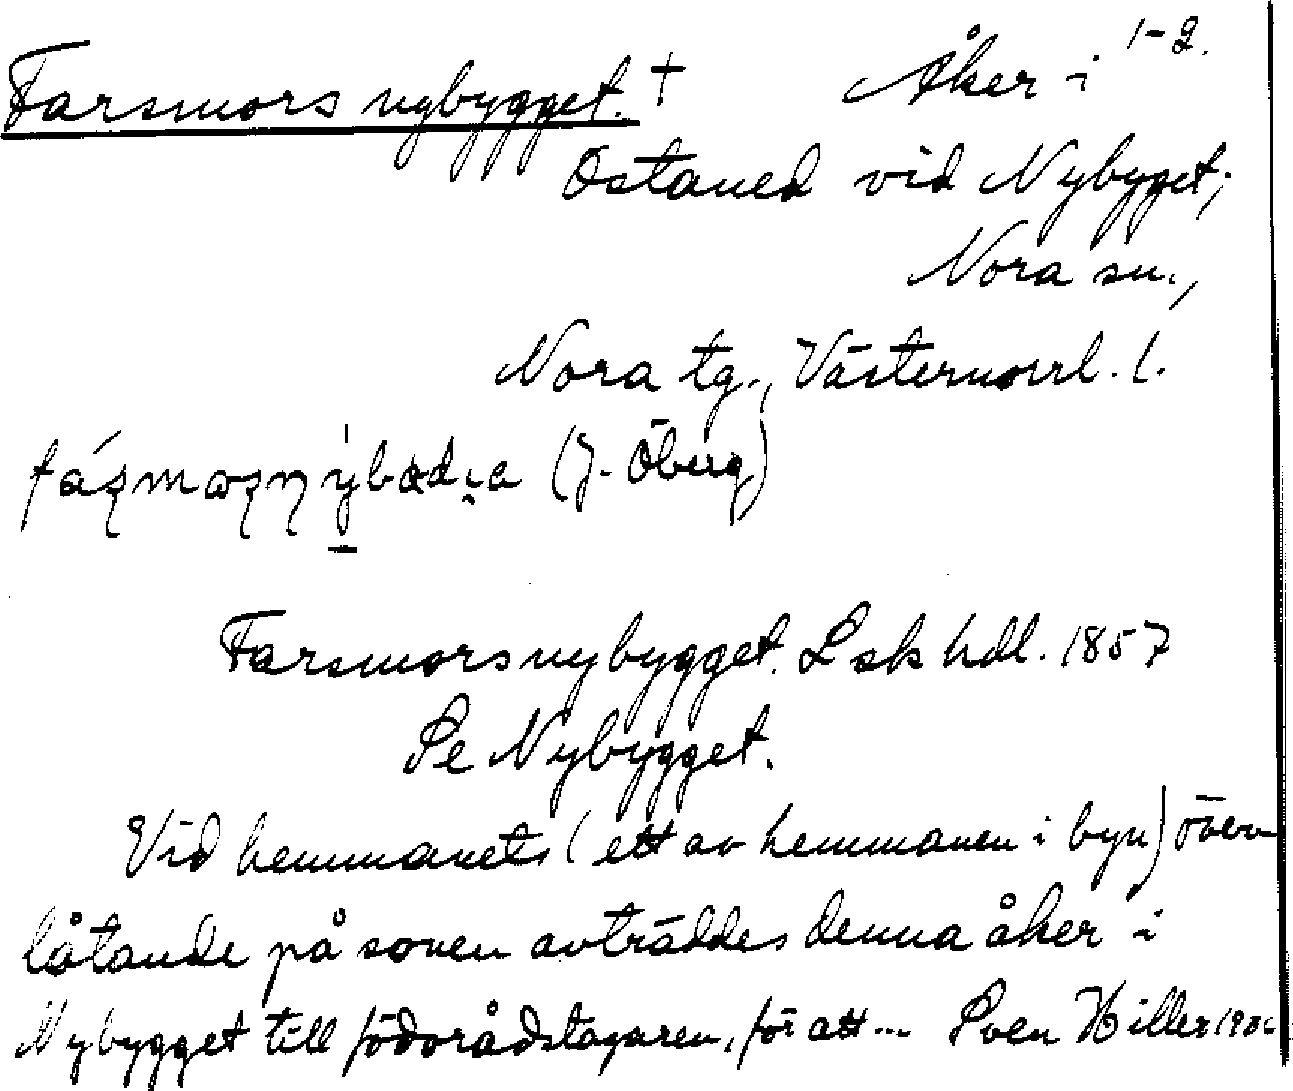 Farsmors nybygget. + Åker i 1-2.
Östaned vid Nybygget;
Nora sn.,
Nora tg., Västernorrl. l.
(J. Öberg)
Farsmorsnybygget. Lsk hdl. 1857
Se Nybygget.
Vid hemmanets (ett av hemmanen i byn) över
låtande på sonen avträddes denna åker i
Nybygget till födorådstagaren, för att ... Sven Hiller